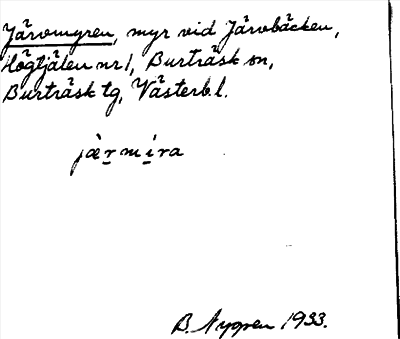 Järvmyren, myr vid Järvbäcken,
Högtjälen nr 1, Burträsk sn,
Burträsk tg, Västerb. l.
jæ̀r̲mi̲ra
B. Nygren 1933.